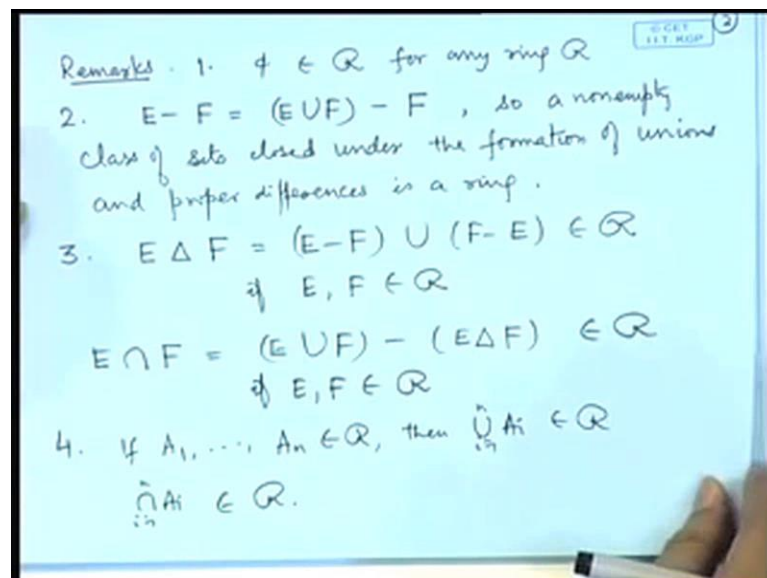 © CET
I.I.T. KGP
2
Remarks. 1. ϕ ∈ R for any ring R
2. E - F = (E ∪ F) - F , so a nonempty
class of sets closed under the formation of unions
and proper differences is a ring.
3. E Δ F = (E-F) ∪ (F-E) ∈ R
if E, F ∈ R
E ∩ F = (E ∪ F) - (E Δ F) ∈ R
if E, F ∈ R
4. If A₁, ..., Aₙ ∈ R, then ⋃ᵢ₌₁ⁿ Aᵢ ∈ R
⋂ᵢ₌₁ⁿ Aᵢ ∈ R.